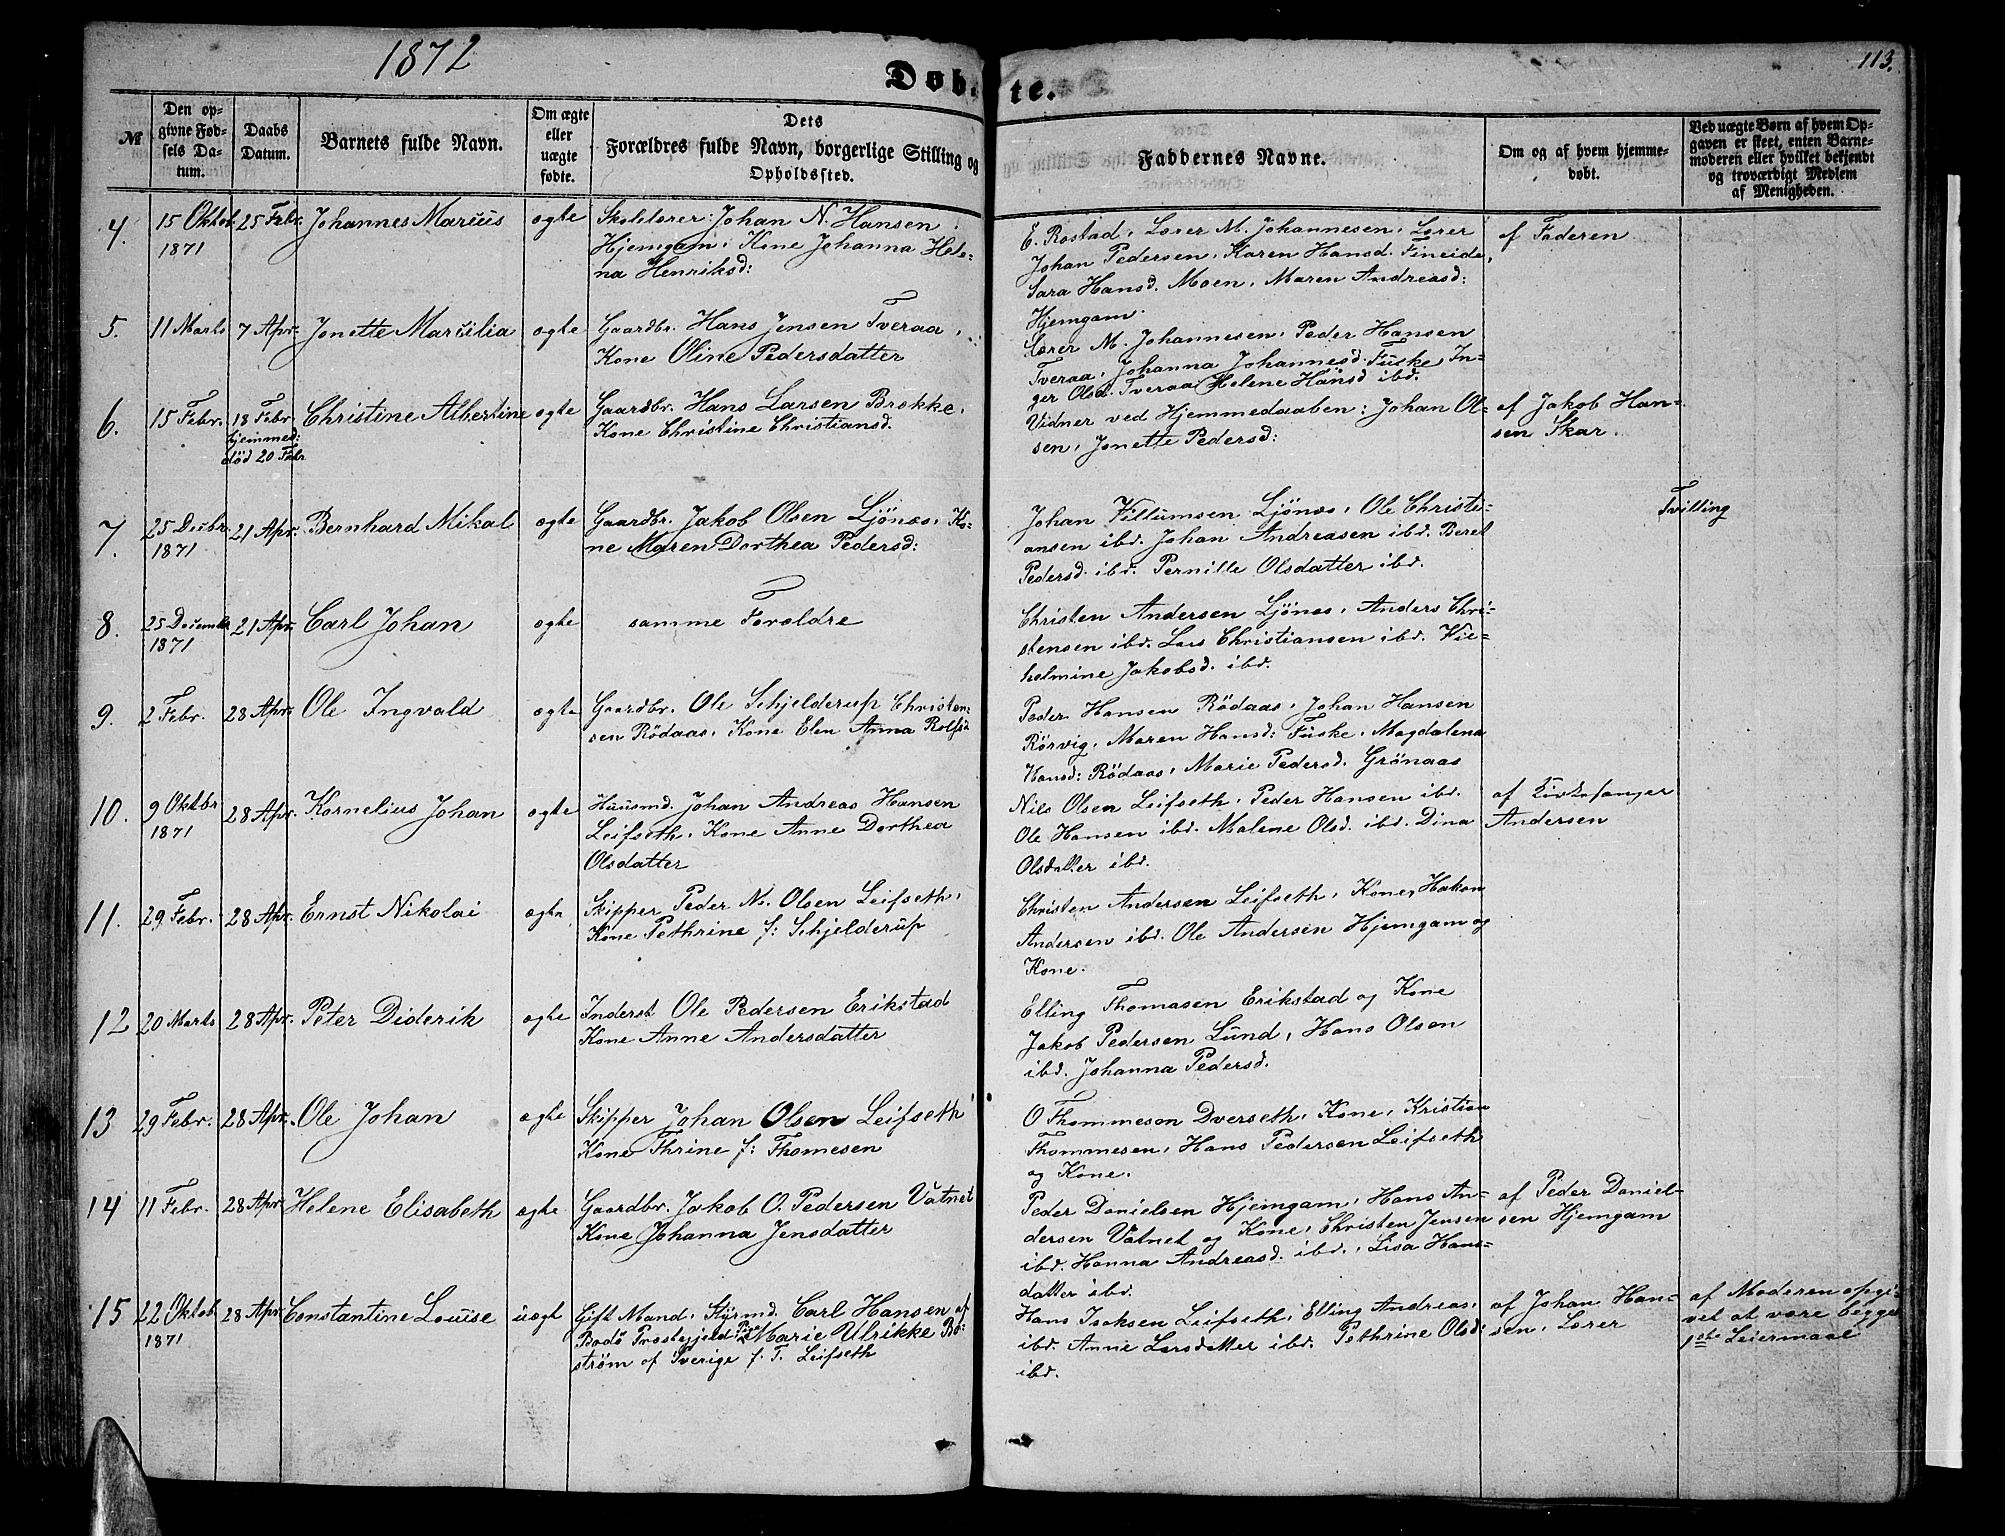 1872
113.
Døbte.
№
Den opgivne Fødsels Datum.
Daabs Datum.
Barnets fulde Navn.
Om ægte eller uægte fødte.
Dets Forældres fulde Navn, borgerlige Stilling og Opholdssted.
Faddernes Navne.
Om og af hvem hjemmedøbt.
Ved uægte Børn af hvem Opgaven er skeet, enten Barnemoderen eller hvilket bekjendt og troværdigt Medlem af Menigheden.
4. 15 Oktob 1871 25 Febr. Johannes Marius ægte
Skolelærer: Johan N. Hansen
Hjemgam. Kone Johanna Hele-
na Henriksd:
E. Rostad. Lærer M. Johannesen. Lærer
Johan Pedersen. Karen Hansd. Fineide,
Sara Hansd. Moen. Maren Andreasd:
Hjemgam.
af Faderen
5. 11 Marts 7 Apr. Jonette Marcilia ægte
Gaardbr. Hans Jensen Tveraa.
Kone Oline Pedersdatter
Lærer M. Johannesen. Peder Hansen
Tveraa. Johanna Johannesd. Fuske. In-
ger Olsd. Tveraa Helene Hansd ibd.
6. 15 Febr. 18 Febr hjemmed: død 20 Febr Christine Albertine ægte
Gaardbr. Hans Larsen Brække.
Kone Christine Christiansd.
Vidner ved Hjemmedaaben: Johan Ol-
sen, Jonette Pedersd:
af Jakob Han-
sen Skar.
7. 25 Decbr. 1871 21 Apr. Bernhard Mikal ægte
Gaardbr. Jakob Olsen Ljönæs. Ko-
ne Maren Dorthea Pedersd:
Johan Villumsen Ljönæs. Ole Christi-
ansen ibd. Johan Andreasen ibd. Beret
Pedersd. ibd. Pernille Olsdatter ibd.
Tvilling
8. 25 Decembr 1871 21 Apr. Carl Johan ægte
samme Forældre
Christen Andersen Ljönæs. Anders Chri-
stensen ibd. Lars Christiansen ibd. Vil-
helmine Jakobsd. ibd.
9. 2 Febr. 28 Apr. Ole Ingvald ægte
Gaardbr. Ole Schjelderup Christen-
sen Rödaas. Kone Elen Anna Rolfsd
Peder Hansen Rödaas. Johan Hansen
Rörvig. Maren Hansd: Fuske. Magdalena
Hansd: Rödaas. Marie Pedersd. Grönaas
10. 9 Oktbr 1871 28 Apr. Kornelius Johan ægte
Huusmd. Johan Andreas Hansen
Leifseth. Kone Anne Dorthea
Olsdatter
Nils Olsen Leifseth. Peder Hansen ibd.
Ole Hansen ibd. Malene Olsd. ibd. Dina
Olsdatter ibd.
af Kirkesanger
Andersen
11. 29 Febr. 28 Apr. Ernst Nikolai ægte
Skipper Peder N. Olsen Leifseth.
Kone Pethrine f: Schjelderup
Christen Andersen Leifseth. Kone. Hakon
Andersen ibd. Ole Andersen Hjemgam og
Kone.
12 20 Marts 28 Apr. Peter Diderik ægte
Inderst Ole Pedersen Erikstad
Kone Anne Andersdatter
Elling Thomasen Erikstad og Kone
Jakob Pedersen Lund, Hans Olsen
ibd. Johanna Pedersd.
13 29 Febr. 28 Apr. Ole Johan ægte
Skipper Johan Olsen Leifseth
Kone Thrine f: Thomesen
O Thommesen Dverseth. Kone. Kristian
Thommesen. Hans Pedersen Leifseth
og Kone.
14 11 Febr. 28 Apr. Helene Elisabeth ægte
Gaardbr. Jakob O. Pedersen Vatnet
Kone Johanna Jensdatter
Peder Danielsen Hjemgam. Hans An-
dersen Vatnet og Kone. Christen Jensen
ibd. Hanna Andreasd. ibd. Lisa Hans-
datter ibd.
af Peder Daniel-
sen Hjemgam
15 22 Oktob 1871 28 Apr. Constantine Louise uægt
Gift Mand. Styrmd. Carl Hansen af
Bodö Præstegjeld. Pige Marie Ulrikke Bo-
ström af Sverige f. T. Leifseth
Hans Isaksen Leifseth. Elling Andreas.
ibd. Anne Larsdatter ibd. Pethrine Olsd:
ibd.
af Johan Han-
sen. Lærer
af Moderen opgi-
vet at være begges
1ste Leiermaal